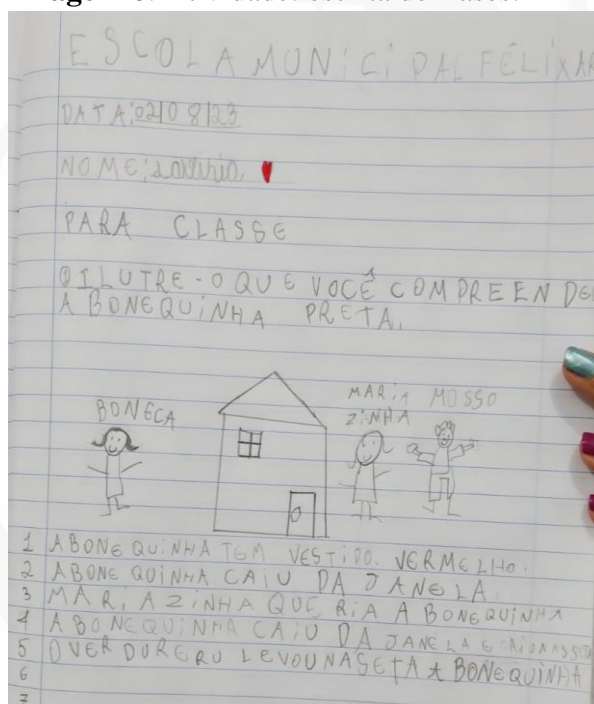 ESCOLA MUNiCiPAL FÉLIX AR
DATA:02/08/23
NOME:
PARA CLASSE
ILUTRE-O QUE VOCÊ COMPREENDE
A BONEQUiNHA PRETA.
BONECA
MARiA
ZiNHA
MOSSO
1 A BONEQUiNHA TEM VESTiDO. VERMELHO.
2 A BONEQUiNHA CAiU DA JANELA.
3 MARiAZINHA QUERiA A BONEQUiNHA
4 A BONEQUiNHA CAiU DA JANELA E
5 O VERDURERU LEVOU NASETA A BONEQUiNHA
6
7